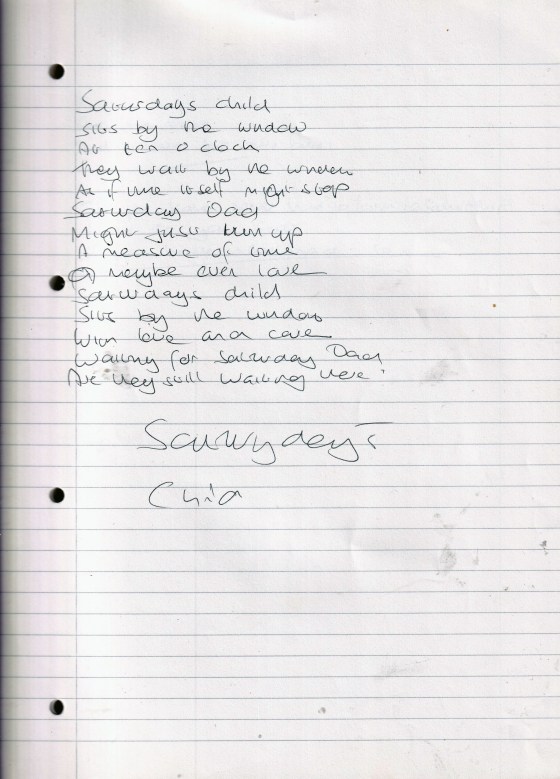 Saturdays child
Sits by the window
At ten o clock
They wait by the window
As if time itself might stop
Saturday Dad
Might just turn up
A measure of time
Or maybe even love
Saturdays child
Sits by the window
With love and care
Waiting for Saturday Dad
Are they still waiting there?
Saturday's
Child